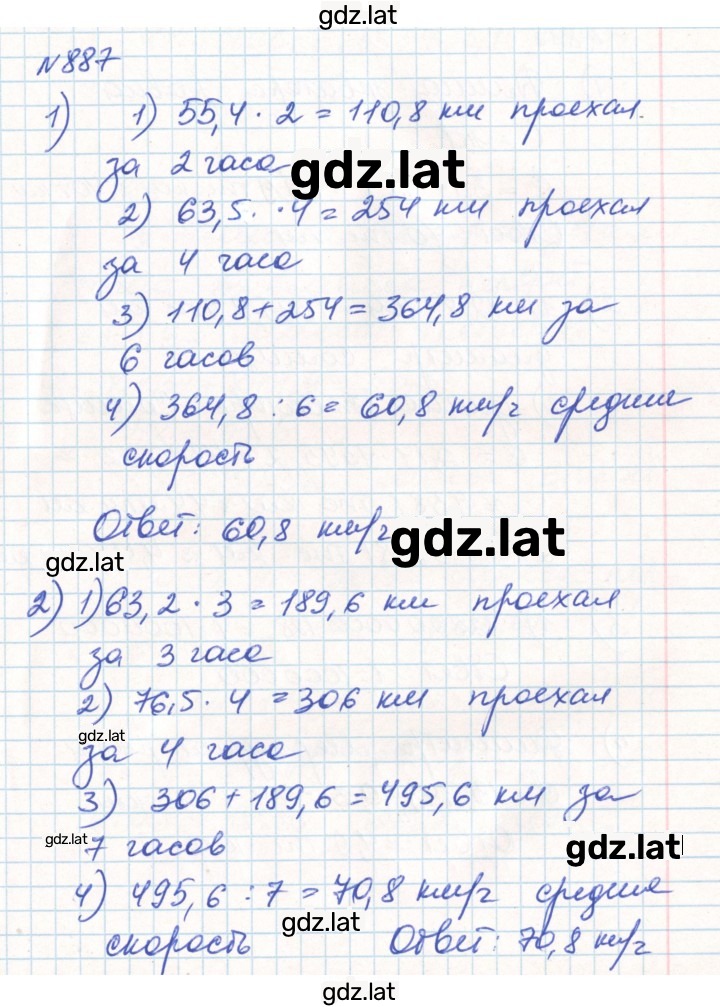 gdz.lat
№887
1) 1) 55,4 · 2 = 110,8 км проехал.
за 2 часа
gdz.lat
2) 63,5. · 4 = 254 км проехал
за 4 часа
3) 110,8 + 254 = 364,8 км за
6 часов
4) 364,8 : 6 = 60,8 км/ч средняя
скорость
Ответ: 60,8 км/ч
gdz.lat
gdz.lat
2) 1) 63,2 · 3 = 189,6 км проехал
за 3 часа
2) 76,5 · 4 = 306 км проехал
gdz.lat
за 4 часа
3) 306 + 189,6 = 495,6 км за
gdz.lat
7 часов
gdz.lat
4) 495,6 : 7 = 70,8 км/ч средняя
gdz.lat
скорость Ответ: 70,8 км/ч
gdz.lat